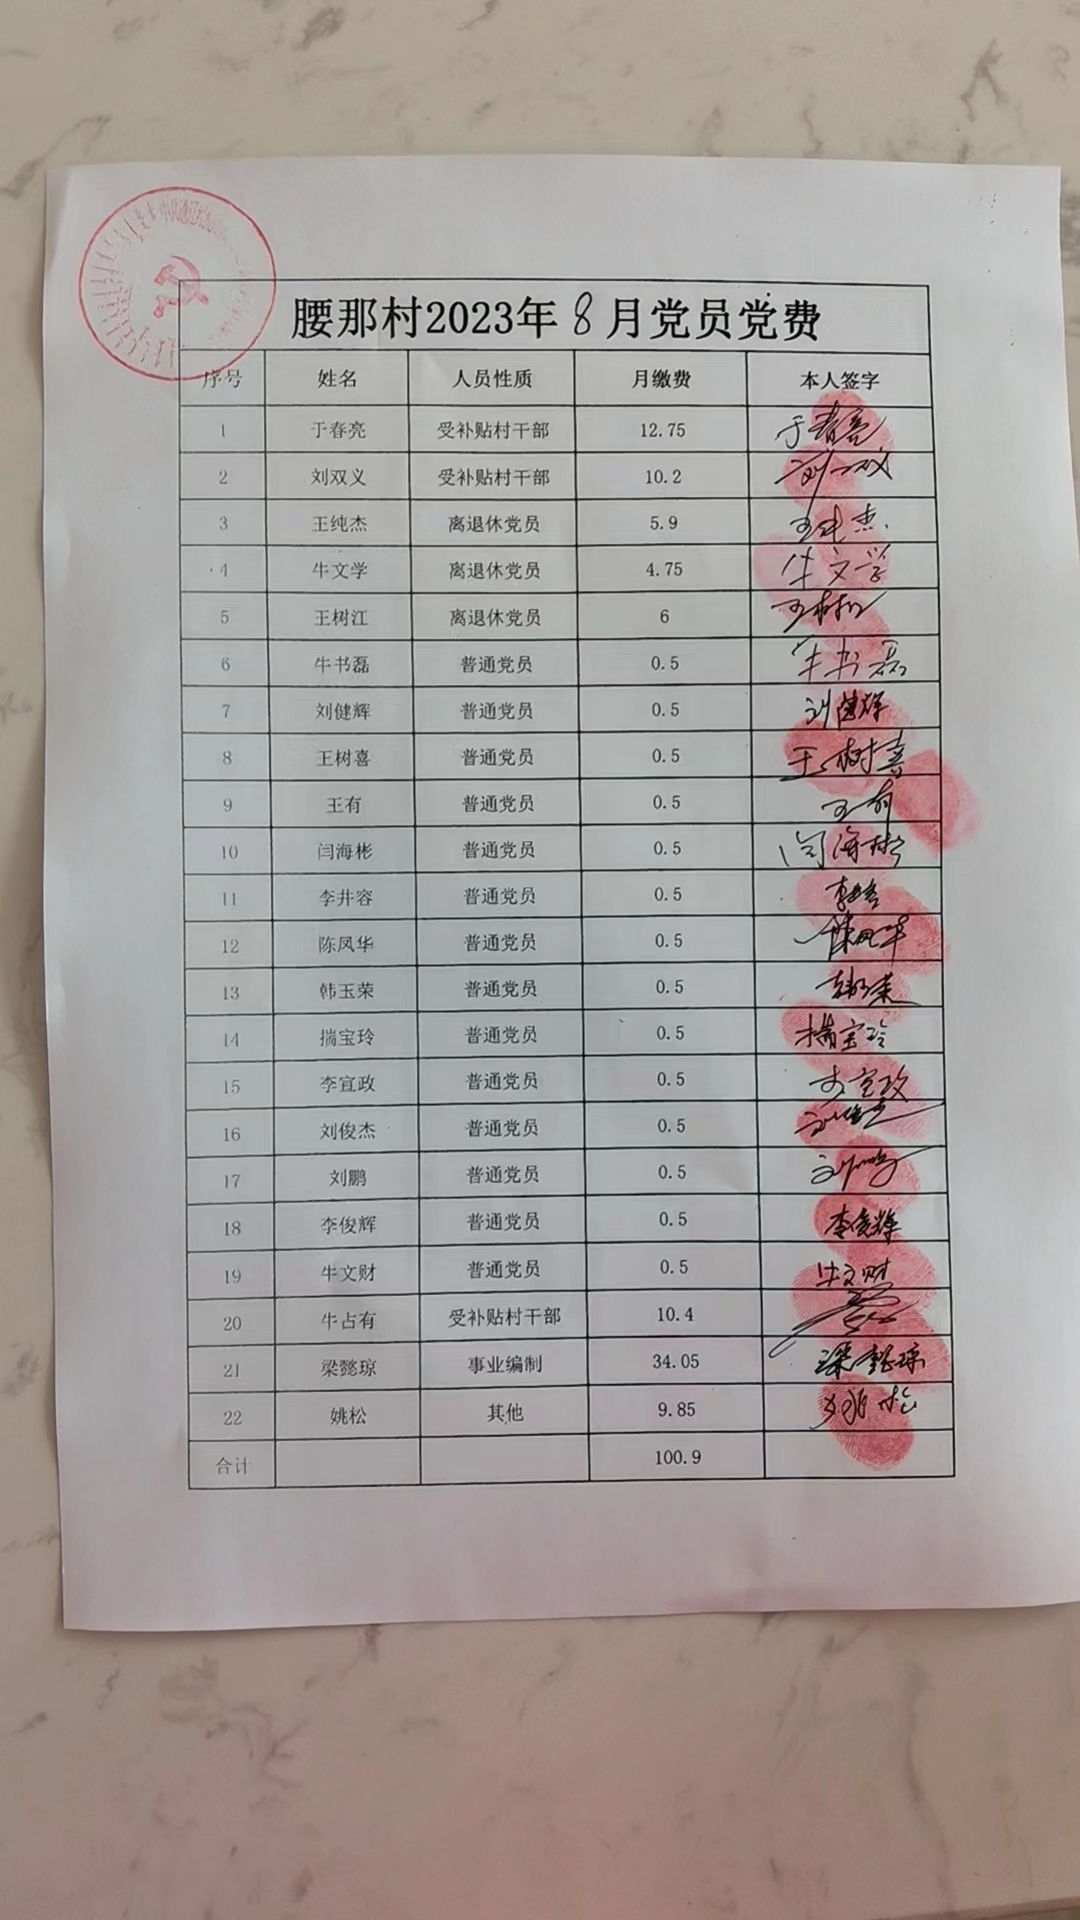 腰那村2023年8月党员党费
序号 姓名 人员性质 月缴费 本人签字
1 于春亮 受补贴村干部 12.75 于春亮
2 刘双义 受补贴村干部 10.2 刘双义
3 王纯杰 离退休党员 5.9 王纯杰
4 牛文学 离退休党员 4.75 牛文学
5 王树江 离退休党员 6 王树江
6 牛书磊 普通党员 0.5 牛书磊
7 刘健辉 普通党员 0.5 刘健辉
8 王树喜 普通党员 0.5 王树喜
9 王有 普通党员 0.5 王有
10 闫海彬 普通党员 0.5 闫海彬
11 李井容 普通党员 0.5 李井容
12 陈凤华 普通党员 0.5 陈凤华
13 韩玉荣 普通党员 0.5 韩玉荣
14 揣宝玲 普通党员 0.5 揣宝玲
15 李宣政 普通党员 0.5 李宣政
16 刘俊杰 普通党员 0.5 刘俊杰
17 刘鹏 普通党员 0.5 刘鹏
18 李俊辉 普通党员 0.5 李俊辉
19 牛文财 普通党员 0.5 牛文财
20 牛占有 受补贴村干部 10.4
21 梁懿琼 事业编制 34.05 梁懿琼
22 姚松 其他 9.85 姚松
合计 100.9